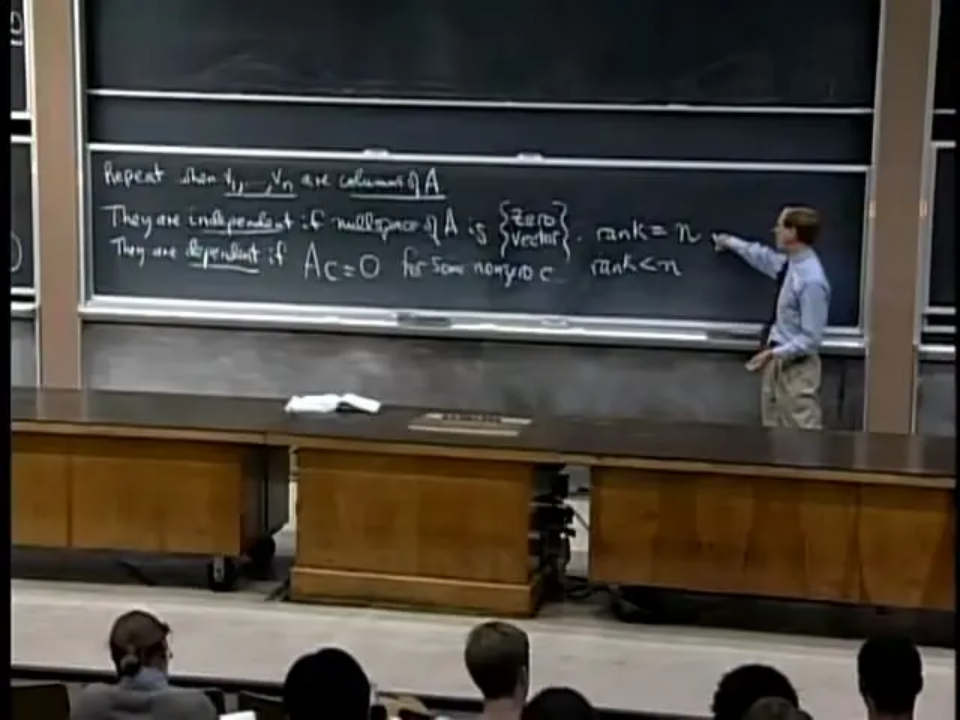 Repeat when v₁, ..., vₙ are columns of A
They are independent if nullspace of A is {zero vector}. rank = n
They are dependent if Ac = 0 for some nonzero c rank < n